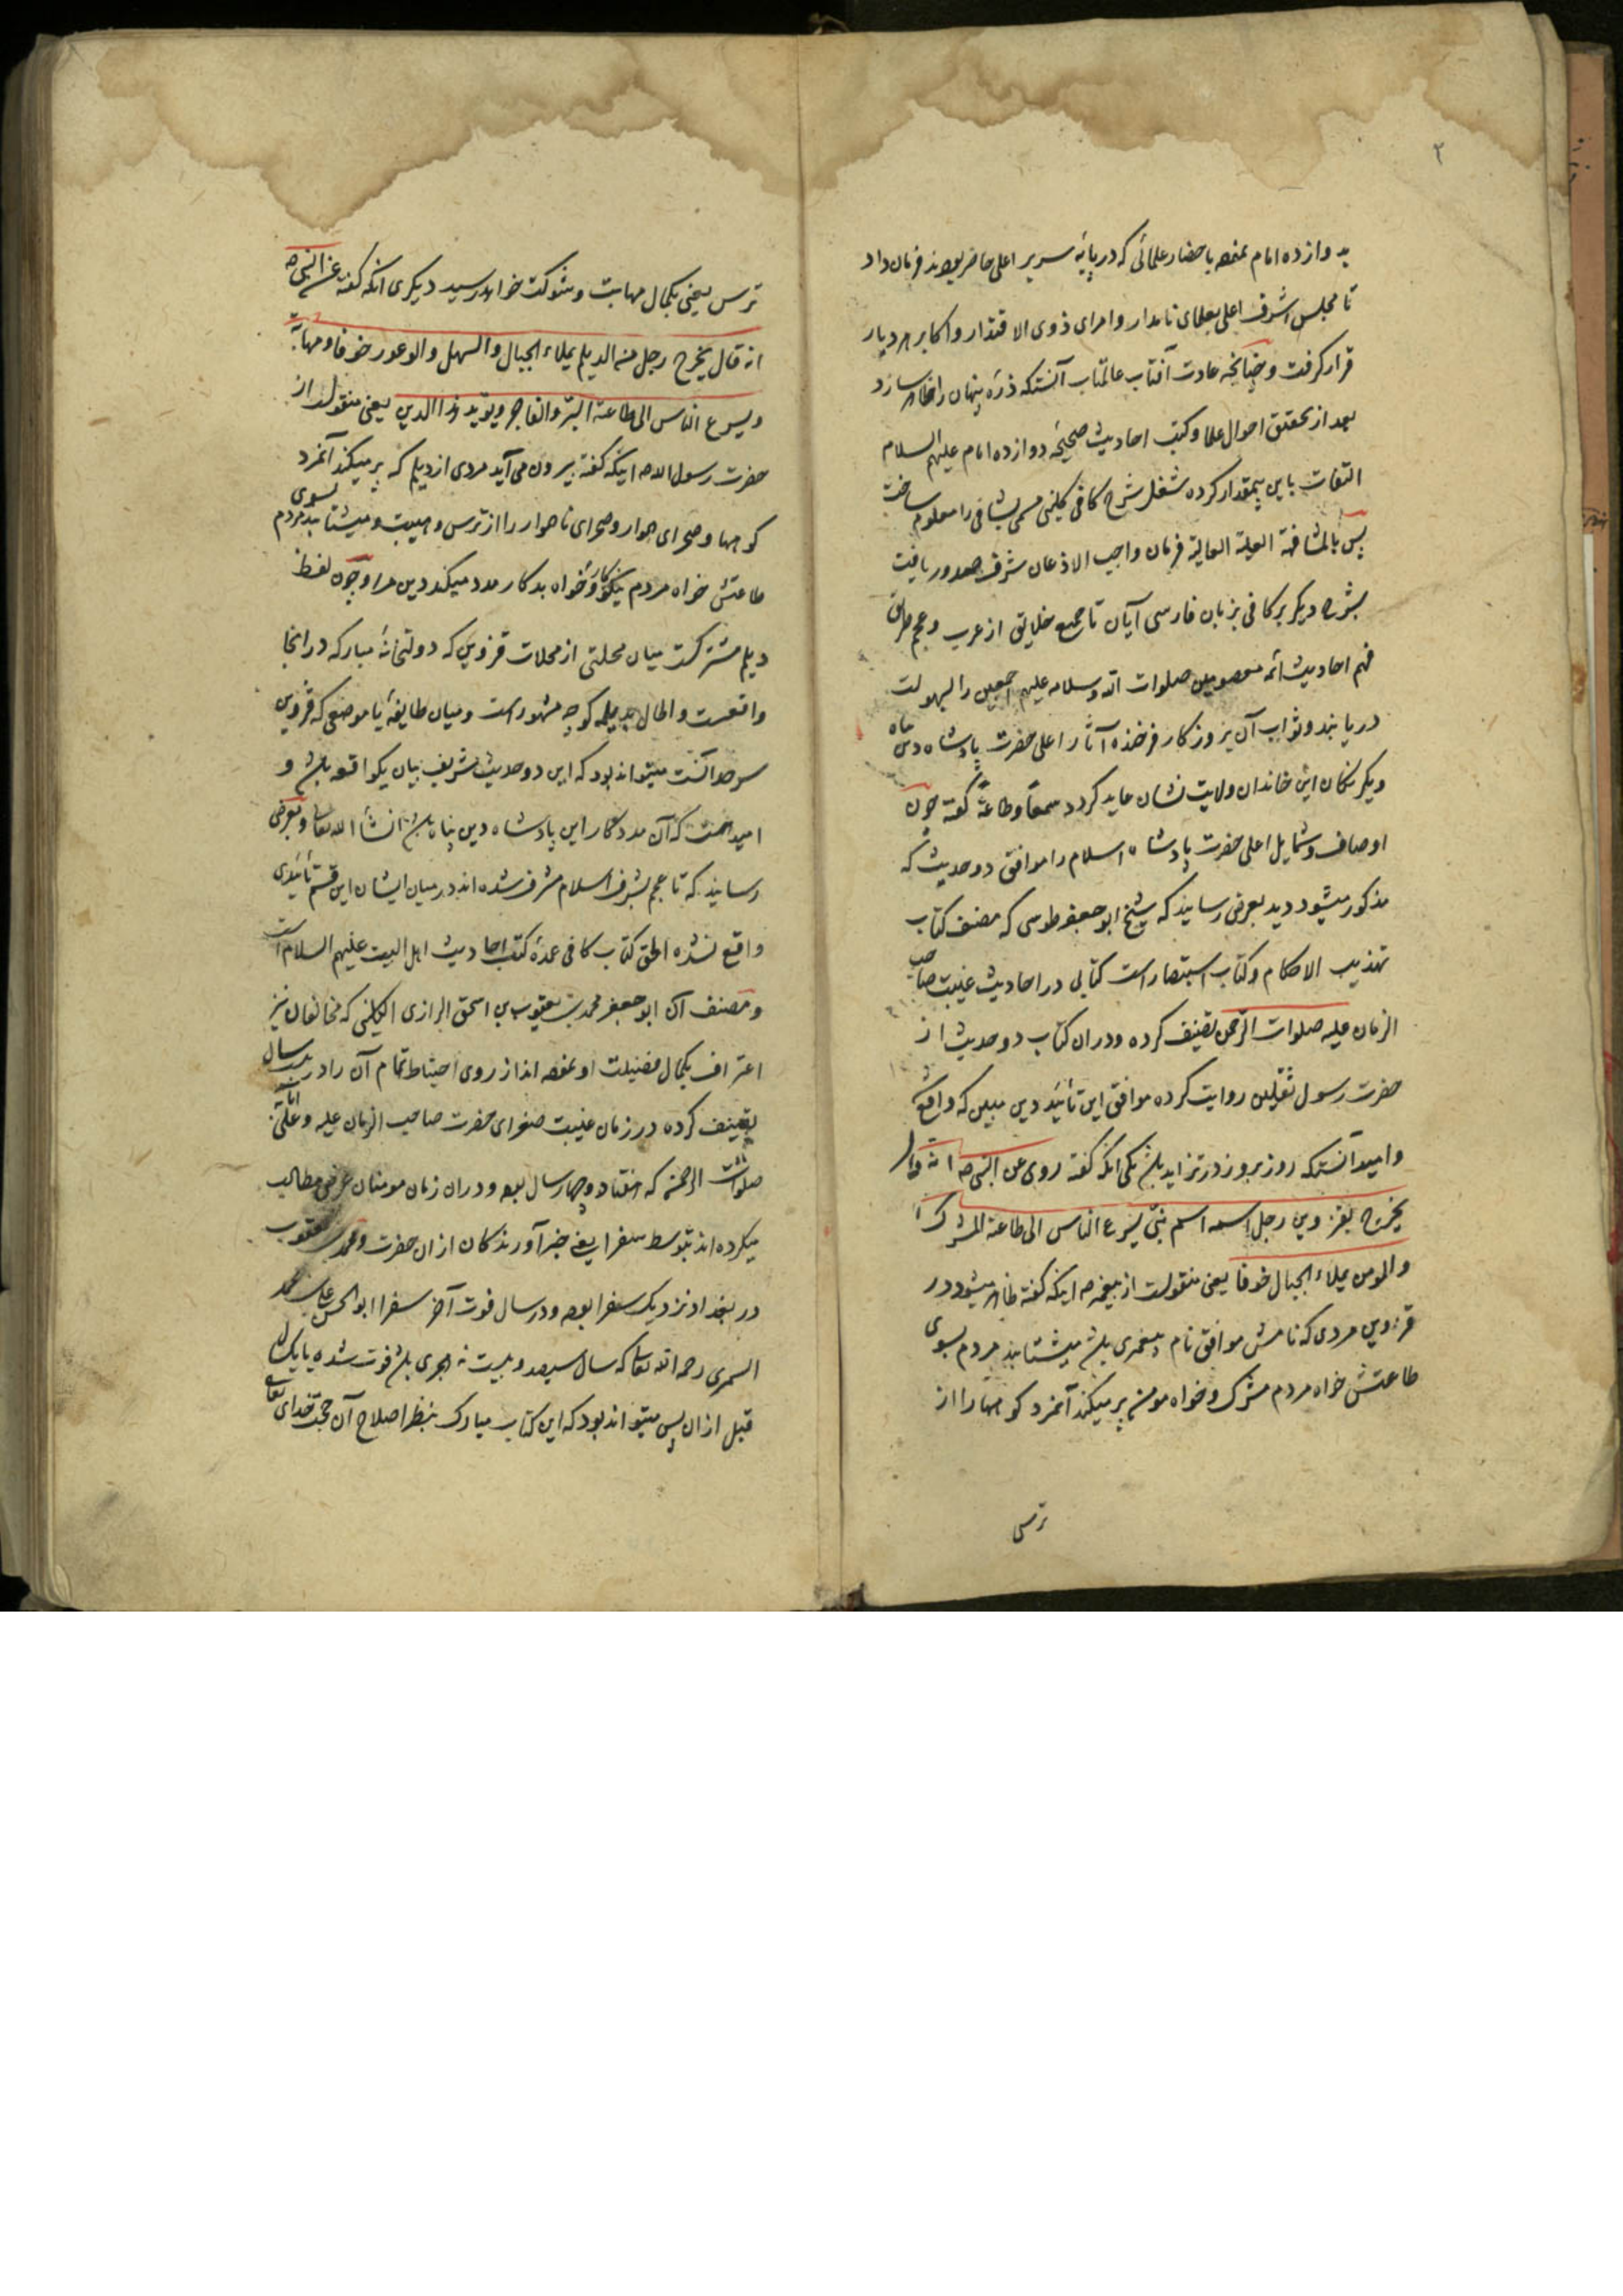 ۲
به دوازده امام نموده باحضار علمائی که در پایهٔ سریر اعلی حاضر بودند فرمان داد
تا مجلس اشرف اعلی بعلمای نامدار و امرای ذوی الاقتدار و اکابر هر دیار
قرار گرفت و چنانچه عادت آفتاب عالمتاب آنستکه ذرّه پنهان را ظاهر سازد
بعد از تحقیق احوال علما و کتب احادیث صحیحهٔ دوازده امام علیهم السلام
التفات باین بیمقدار کرده شغل شرح کافی کلینی مسمی بشافی را معلوم ساخت
پس بالمشافهة العلیة العالیة فرمان واجب الاذعان شرف صدور یافت
بشرح دیگر بر کافی بزبان فارسی آبان تا جمیع خلایق از عرب و عجم طریق
فهم احادیث ائمه معصومین صلوات الله و سلامه علیهم اجمعین را بسهولت
دریابند و ثواب آن بروزکار فرخنده آثار اعلی حضرت پادشاه دین پناه
و دیگر نیکان این خاندان ولایت نشان عاید کردد سمعًا و طاعةً گفته چون
اوصاف و شمایل اعلی حضرت پادشاه اسلام را موافق دو حدیث که
مذکور میشود دید بعرض رسانید که شیخ ابو جعفر طوسی که مصنف کتاب
تهذیب الاحکام و کتاب استبصار است کتابی در احادیث غیبت صاحب
الزمان علیه صلوات الرحمن تصنیف کرده و در ان کتاب دو حدیث از
حضرت رسول ثقلین روایت کرده موافق این تائید دین مبین که واقع شد
و امید آنستکه روز بروز در تزاید باشد یکی انکه گفته روی عن النبی ص انه قال
یخرج بقزوین رجل اسمه اسم نبیّ یسرع الناس الی طاعته المشرک
والمومن یملاء الجبال خوفا یعنی منقولست از پیغمبر ص اینکه گفته ظاهر میشود در
قزوین مردی که نامش موافق نام پیغمبری باشد میشتابند مردم بسوی
طاعتش خواه مردم مشرک و خواه مومن پر میکند آنمرد کوهها را از
ترس
ترس یعنی بکمال مهابت و شوکت خواهد رسید دیکری انکه گفته عن النبی ص
انه قال یخرج رجل من الدیلم یملاء الجبال و السهل و الوعور خوفا و مهابة
و یسرع الناس الی طاعته البرّ و الفاجر و یؤید هذا الدین یعنی منقولست از
حضرت رسول الله ص اینکه گفته بیرون می آید مردی از دیلم که پر میکند آنمرد
کوهها و صحرای هموار و صحرای ناهموار را از ترس و هیبت و میشتابند مردم بسوی
طاعتش خواه مردم نیکوکار و خواه بدکار مدد میکند دین مرا و چون لفظ
دیلم مشترکست میان محلتی از محلات قزوین که دولتخانهٔ مبارکه در انجا
واقعست و الحال بدیلمه کوچه مشهور است و میان طایفهٔ یا موضعی که قزوین
سرحد آنست میتواند بود که این دو حدیث شریف بیان یکواقعه باشد و
امید هست که آن مددکار این پادشاه دین پناه باشد انشاء الله تعالی و بعرض
رسانید که تا عجم بشرف اسلام مشرف شده اند در میان ایشان این قسم تائیدی
واقع نشده الحق کتاب کافی عمدهٔ کتب احادیث اهل البیت علیهم السلام است
و مصنف آن ابو جعفر محمد بن یعقوب بن اسحق الرازی الکلینی که مخالفان نیز
اعتراف بکمال فضیلت او نموده اند از روی احتیاط تمام آن را در بیست سال
تصنیف کرده در زمان غیبت صغرای حضرت صاحب الزمان علیه و علی آبائه
صلوات الرحمن که هفتاد و چهار سال بوده و در ان زمان مومنان عرض مطالب
میکرده اند بتوسط سفرا یعنی خبرآورندکان از ان حضرت و محمد بن یعقوب
در بغداد نزدیک سفرا بوده و در سال فوت آخر سفرا ابو الحسن علی بن محمد
السمری رحمه الله تعالی که سال سیصد و بیست نه هجری باشد فوت شده یا یکسال
قبل از ان پس میتواند بود که این کتاب مبارک بنظر اصلاح آن حجت خدای تعالی